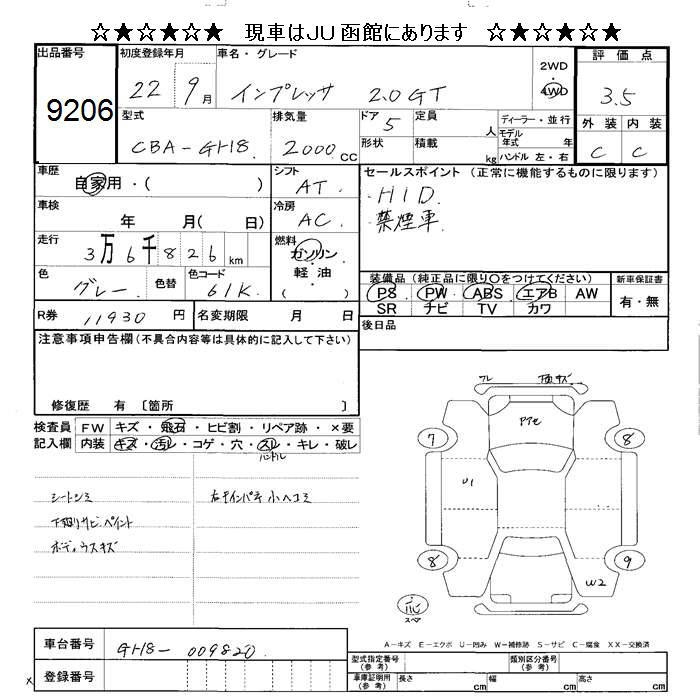 ☆★☆★☆★ 現車はJU函館にあります ☆★☆★☆★
出品番号 9206
初度登録年月 22 9月
車名・グレード インプレッサ 2.0GT
2WD 4WD
評価点 3.5
型式 CBA-GH8
排気量 2000cc
ドア 5 定員 人
形状 積載 kg
ディーラー・並行
モデル年式 年
ハンドル 左・右
外装 内装
C C
車歴 自家用・( )
シフト AT
セールスポイント(正常に機能するものに限ります)
・HID
・禁煙車
車検 年 月( 日)
冷房 AC
走行 3万6千826km
燃料 ガソリン 軽油 ( )
色 グレー 色替 色コード 61K
装備品(純正品に限り○をつけてください)
PS PW ABS エアB AW
SR ナビ TV カワ
新車保証書
有・無
R券 11930円 名変期限 月 日
後日品
注意事項申告欄(不具合内容等は具体的に記入して下さい)
修復歴 有〔箇所 〕
検査員記入欄
FW キズ・飛石・ヒビ割・リペア跡・×要
内装 キズ・汚レ・コゲ・穴・スレ・キレ・破レ
ハンドル
シートシミ
下廻りサビ・ペイント
ボディウスキズ
フレ 下廻キズ
アクセ
7 8
U1
8 9
W2
スペア
A-キズ E-エクボ U-凹み W-補修跡 S-サビ C-腐食 XX-交換済
車台番号 GH8-009820
登録番号
型式指定番号(参考) 類別区分番号(参考)
車庫証明用(参考) 長さ cm 幅 cm 高さ cm